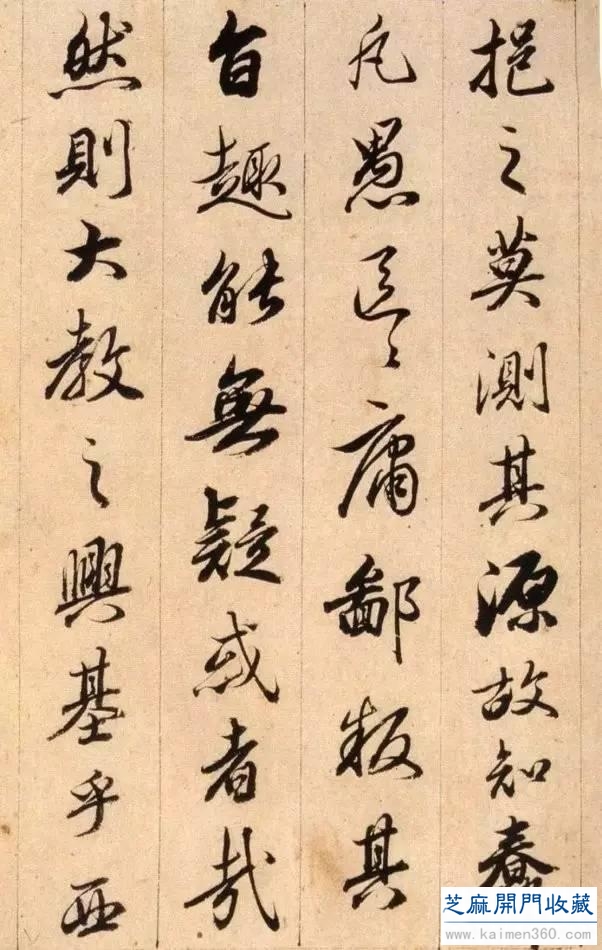 挹之莫測其源故知蠢
凡愚區〻庸鄙投其
旨趣能無疑惑者哉
然則大教之興基乎西
芝麻開門收藏
www.kaimen360.com